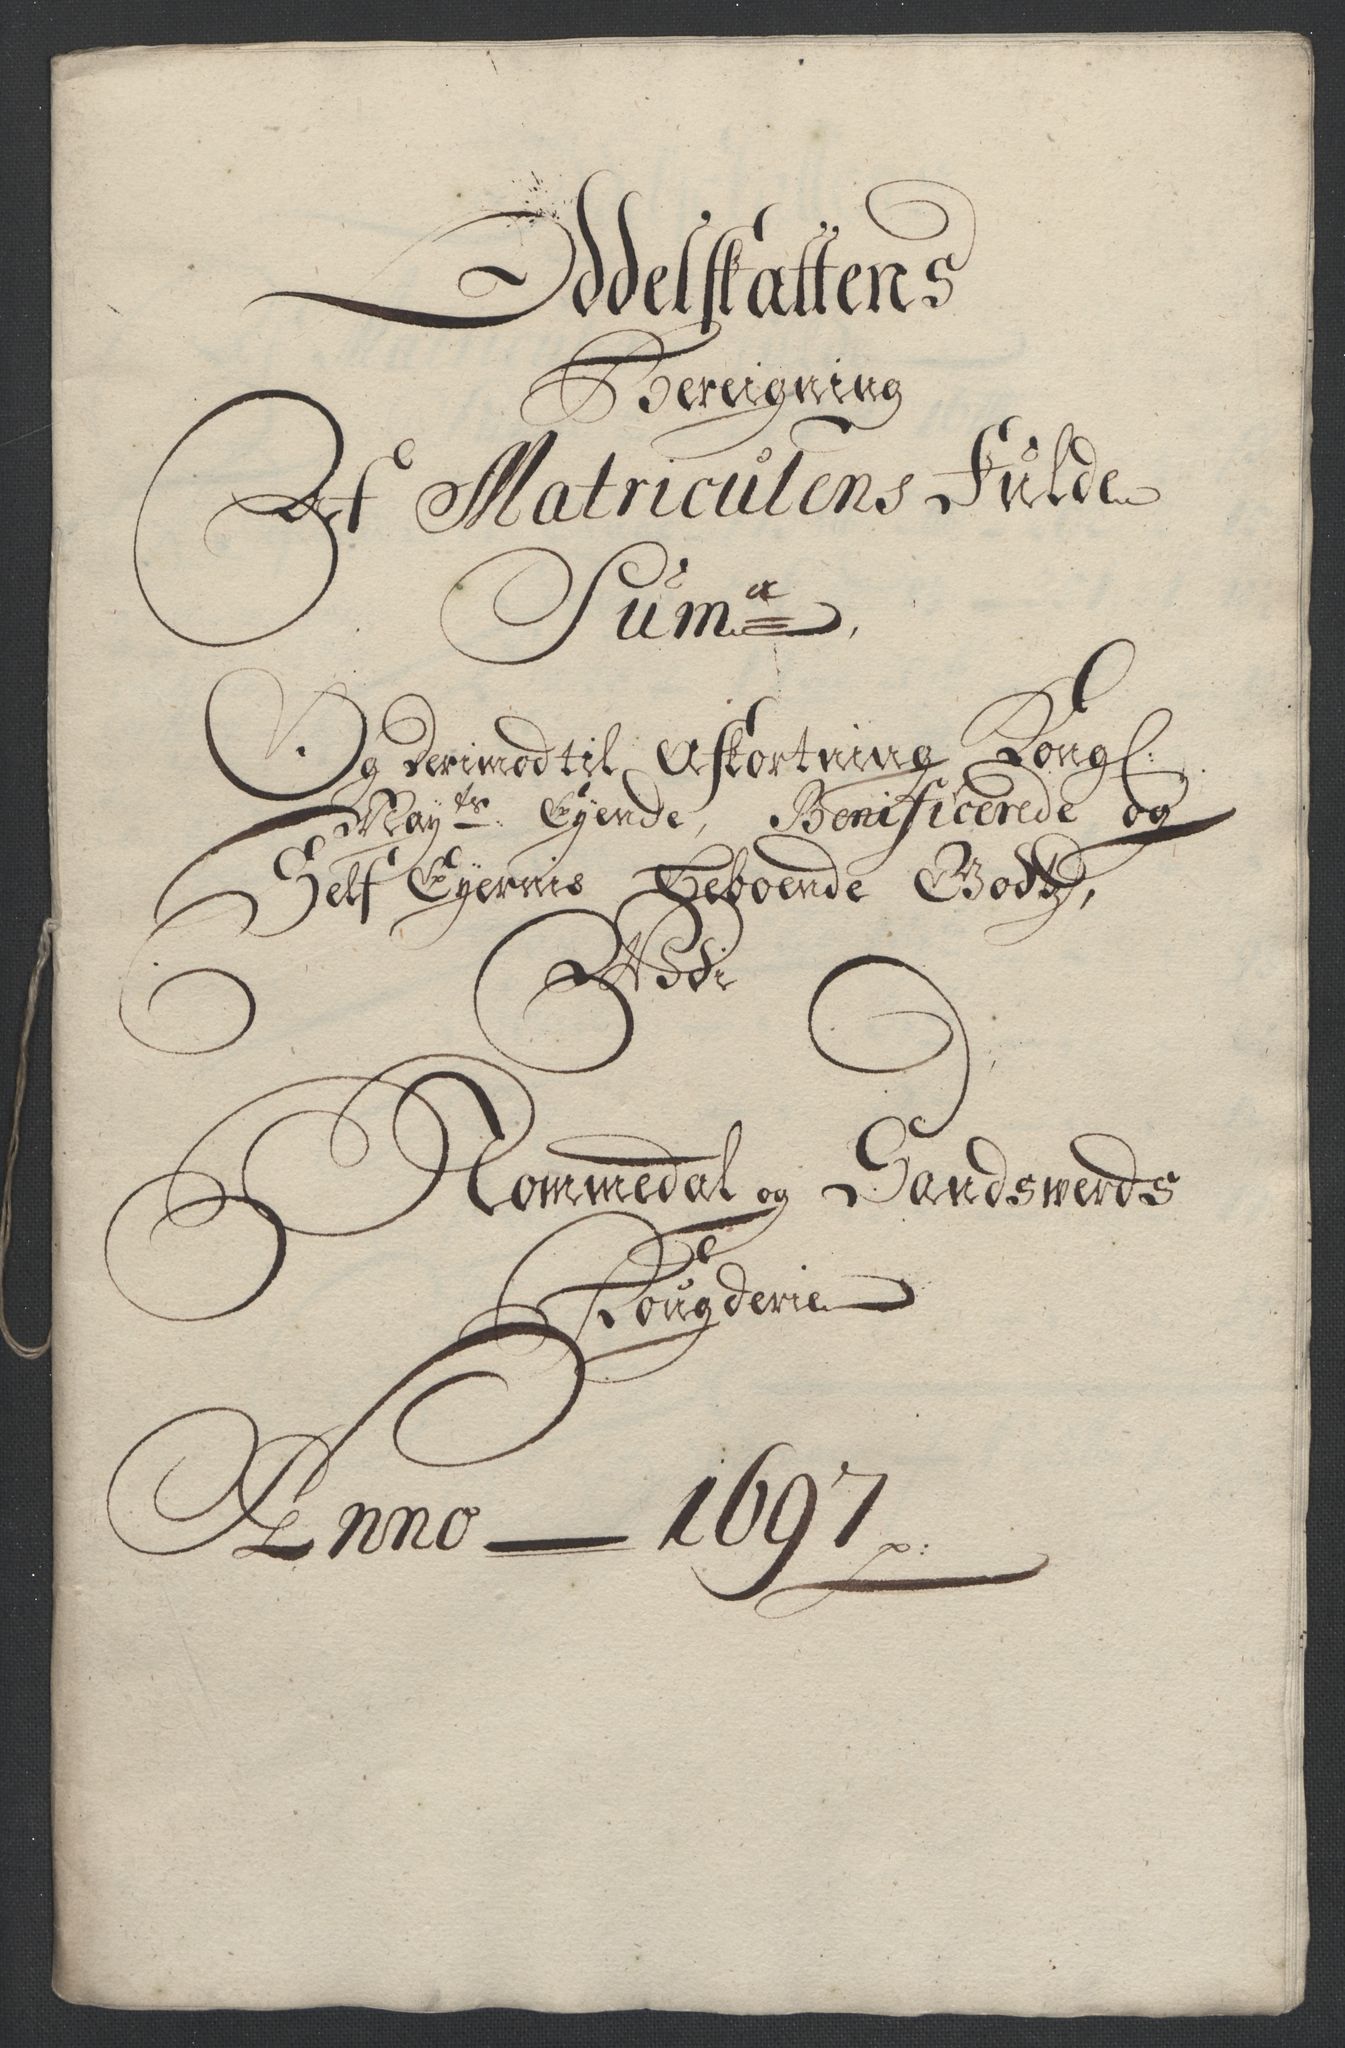 Oddelskattens
Bereigning
Af Matriculens Fulde
Sum<sup>a</sup>,
Og derimod til Afkortning Kongl:
May<sup>ts</sup>: Eyende, Benificerede og
Self Eyernis Beboende Godtz,
Udi
Nommedal og Sandswerds
Fougderie
Anno — 1697